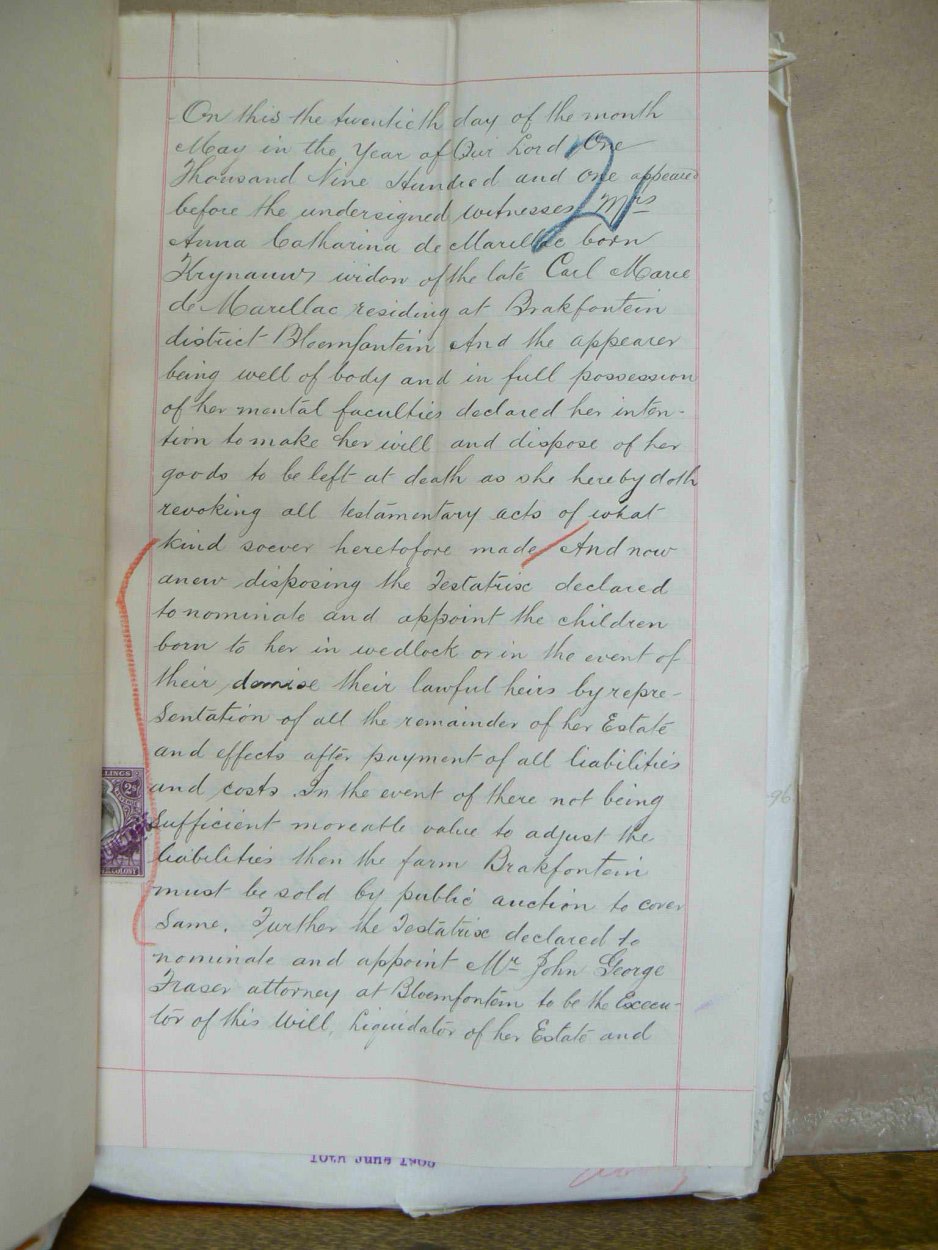 On this the twentieth day of the month
May in the Year of Our Lord One
Thousand Nine Hundred and One appeared
before the undersigned witnesses Mrs
Anna Catharina de Marillac born
Krynauw widow of the late Carl Marie
de Marillac residing at Brakfontein
district Bloemfontein And the appearer
being well of body and in full possession
of her mental faculties declared her inten-
tion to make her will and dispose of her
goods to be left at death as she hereby doth
revoking all testamentary acts of what
kind soever heretofore made And now
anew disposing the Testatrix declared
to nominate and appoint the children
born to her in wedlock or in the event of
their demise their lawful heirs by repre-
sentation of all the remainder of her Estate
and effects after payment of all liabilities
and costs. In the event of there not being
sufficient moveable value to adjust the
liabilities then the farm Brakfontein
must be sold by public auction to cover
same. Further the Testatrix declared to
nominate and appoint Mr John George
Fraser attorney at Bloemfontein to be the Execu-
tor of this Will, Liquidator of her Estate and
2
LLINGS
2s
COLONY
10th June
96